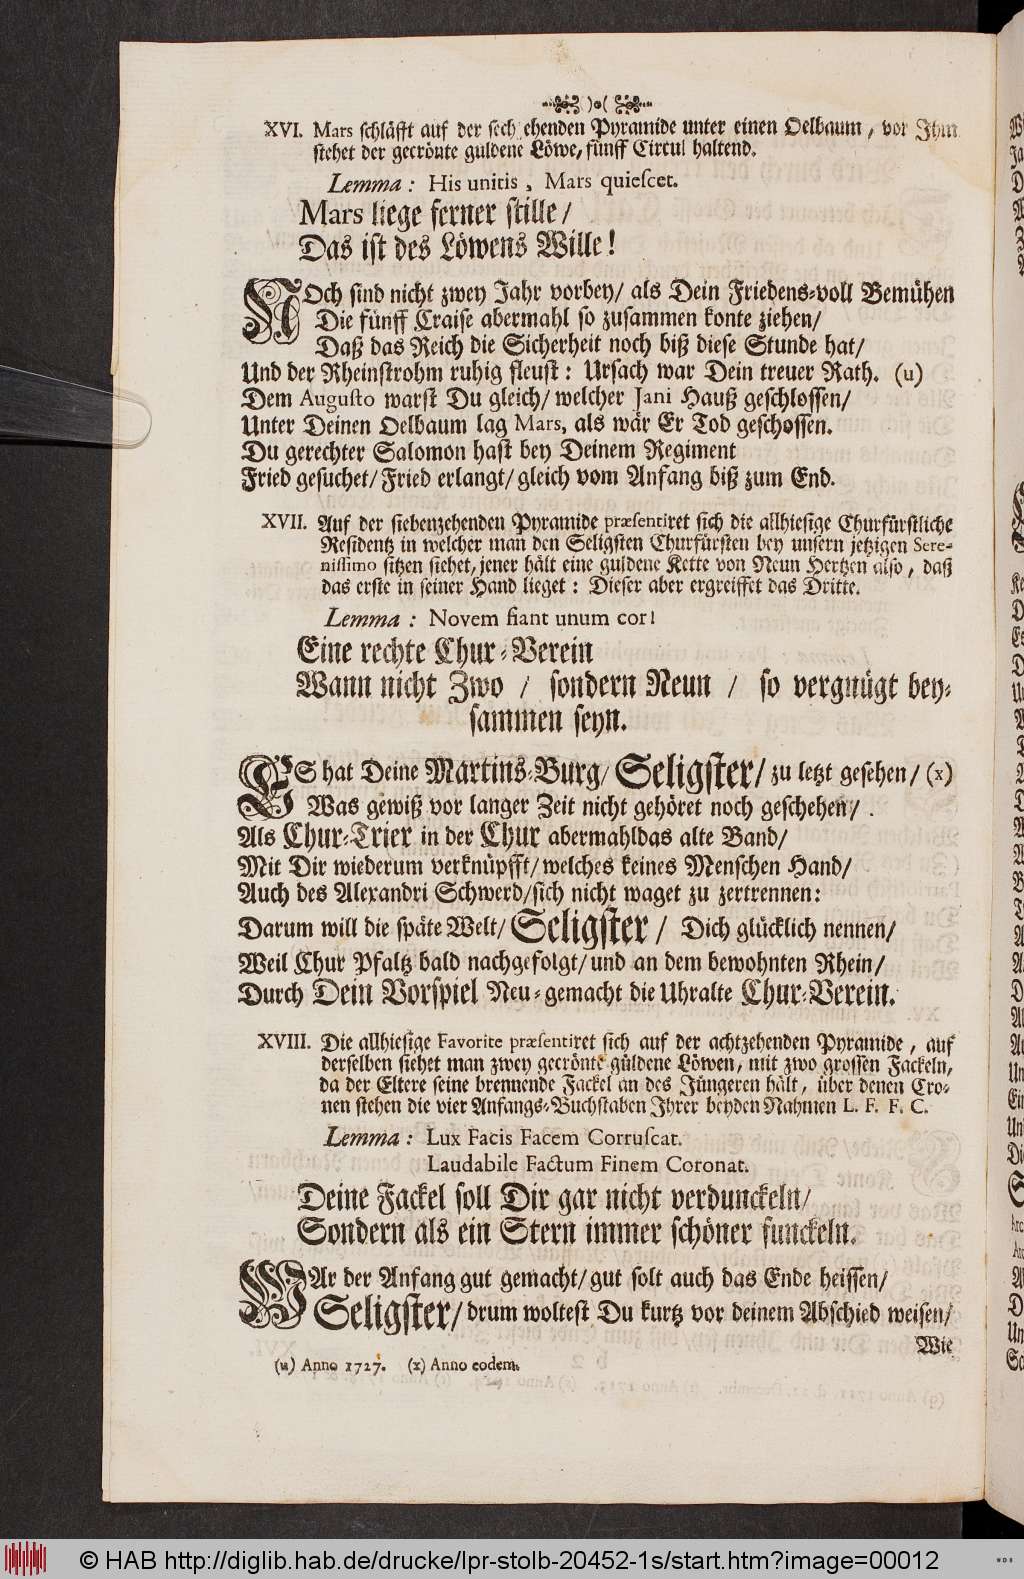 XVI. Mars schläfft auf der sech ehenden Pyramide unter einen Oelbaum, vor Ihm
stehet der gecrönte guldene Löwe, fünff Circul haltend.
Lemma: His unitis, Mars quiescet.
Mars liege ferner stille/
Das ist des Löwens Wille!
NOch sind nicht zwey Jahr vorbey/ als Dein Friedens-voll Bemühen
Die fünff Craise abermahl so zusammen konte ziehen/
Daß das Reich die Sicherheit noch biß diese Stunde hat/
Und der Rheinstrohm ruhig fleust: Ursach war Dein treuer Rath. (u)
Dem Augusto warst Du gleich/ welcher Jani Hauß geschlossen/
Unter Deinen Oelbaum lag Mars, als wär Er Tod geschossen.
Du gerechter Salomon hast bey Deinem Regiment
Fried gesuchet/ Fried erlangt/ gleich vom Anfang biß zum End.
XVII. Auf der siebenzehenden Pyramide præsentiret sich die allhiesige Churfürstliche
Residentz in welcher man den Seligsten Churfürsten bey unsern jetzigen Sere-
nissimo sitzen siehet, jener hält eine guldene Kette von Neun Hertzen also, daß
das erste in seiner Hand lieget: Dieser aber ergreiffet das Dritte.
Lemma: Novem fiant unum cor!
Eine rechte Chur-Verein
Wann nicht Zwo / sondern Neun / so vergnügt bey-
sammen seyn.
ES hat Deine Martins-Burg/ Seligster/ zu letzt gesehen/ (x)
Was gewiß vor langer Zeit nicht gehöret noch geschehen/
Als Chur-Trier in der Chur abermahldas alte Band/
Mit Dir wiederum verknüpfft/ welches keines Menschen Hand/
Auch des Alexandri Schwerd/sich nicht waget zu zertrennen:
Darum will die späte Welt/ Seligster/ Dich glücklich nennen/
Weil Chur Pfaltz bald nachgefolgt/ und an dem bewohnten Rhein/
Durch Dein Vorspiel Neu-gemacht die Uhralte Chur-Verein.
XVIII. Die allhiesige Favorite præsentiret sich auf der achtzehenden Pyramide, auf
derselben siehet man zwey gecrönte güldene Löwen, mit zwo grossen Fackeln,
da der Eltere seine brennende Fackel an des Jüngeren hält, über denen Cro-
nen stehen die vier Anfangs-Buchstaben Ihrer beyden Nahmen L. F. F. C.
Lemma: Lux Facis Facem Corruscat.
Laudabile Factum Finem Coronat.
Deine Fackel soll Dir gar nicht verdunckeln/
Sondern als ein Stern immer schöner funckeln.
WAr der Anfang gut gemacht/ gut solt auch das Ende heissen/
Seligster/ drum woltest Du kurtz vor deinem Abschied weisen/
Wie
(u) Anno 1727. (x) Anno eodem.
© HAB http://diglib.hab.de/drucke/lpr-stolb-20452-1s/start.htm?image=00012